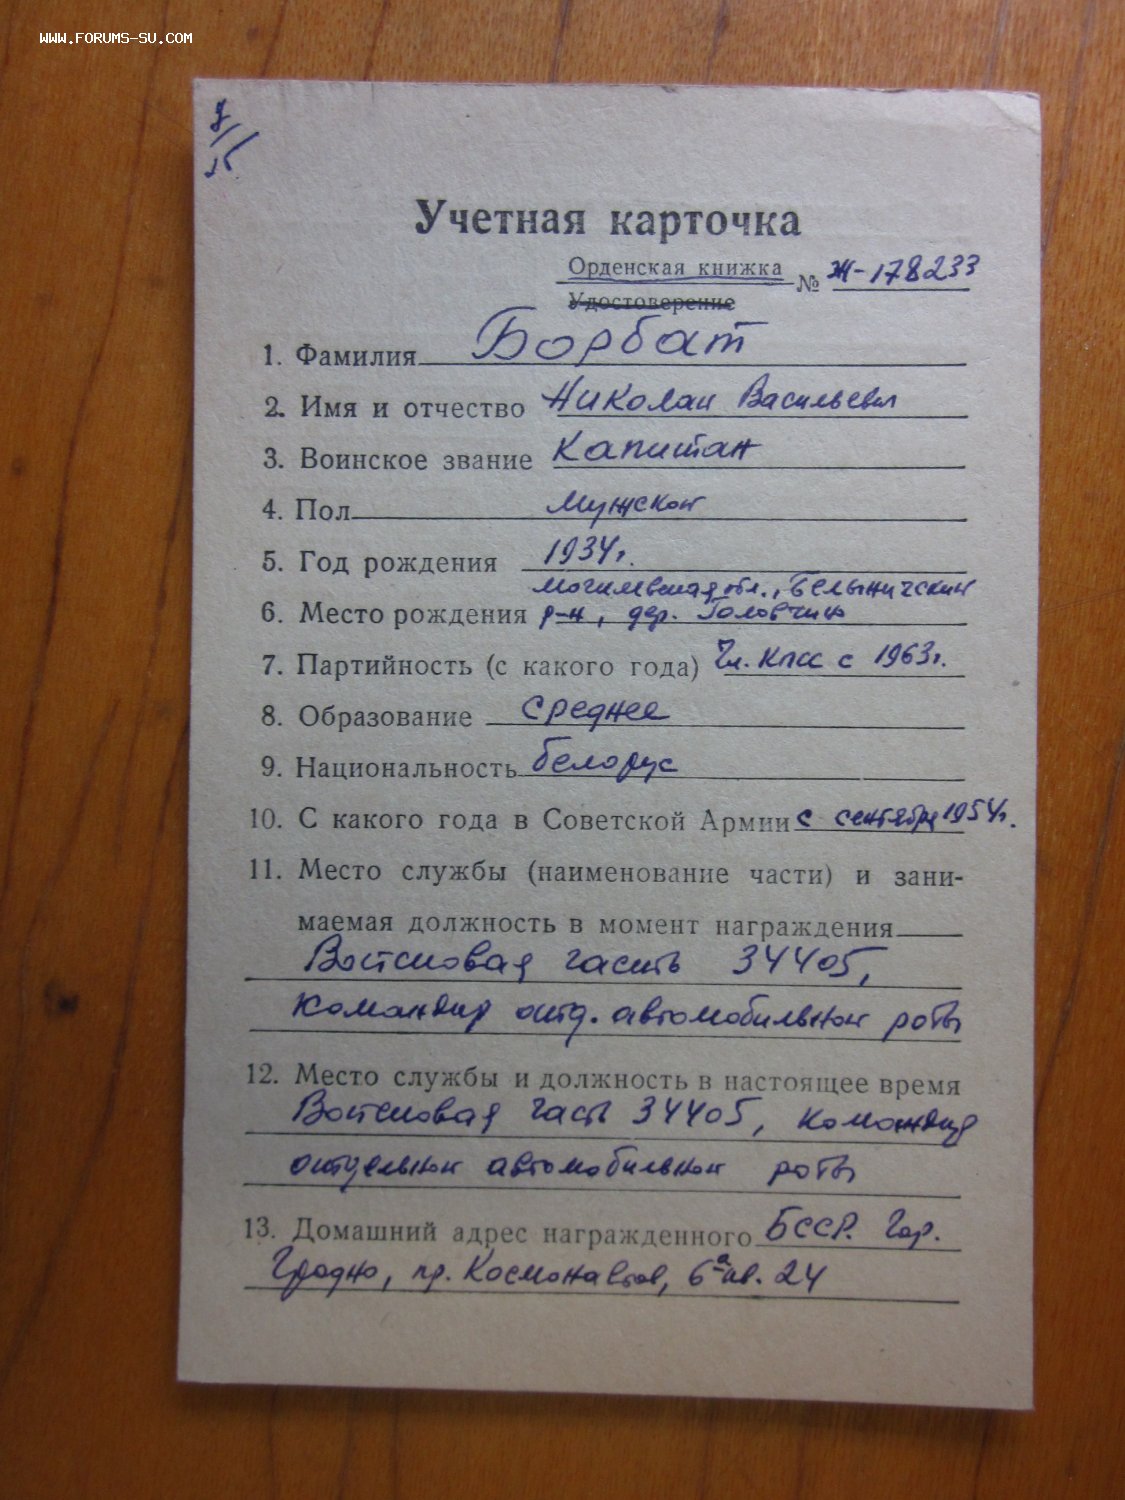 www.forums-su.com
Учетная карточка
Орденская книжка № Ж-178233
Удостоверение
1. Фамилия Борбат
2. Имя и отчество Николай Васильевич
3. Воинское звание Капитан
4. Пол мужской
5. Год рождения 1934г.
Могилевская обл., Белыничский
6. Место рождения р-н, дер. Головчино
7. Партийность (с какого года) Чл. КПСС с 1963г.
8. Образование среднее
9. Национальность белорус
10. С какого года в Советской Армии с сентября 1954г.
11. Место службы (наименование части) и зани-
маемая должность в момент награждения
Войсковая часть 34405,
командир отд. автомобильной роты
12. Место службы и должность в настоящее время
Войсковая часть 34405, командир
отдельной автомобильной роты
13. Домашний адрес награжденного БССР. Гор.
Гродно, пр. Космонавтов, 6а кв. 24